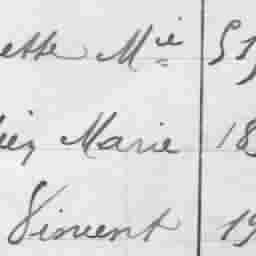 ette Mie 51
iez Marie 18
Vincent 19